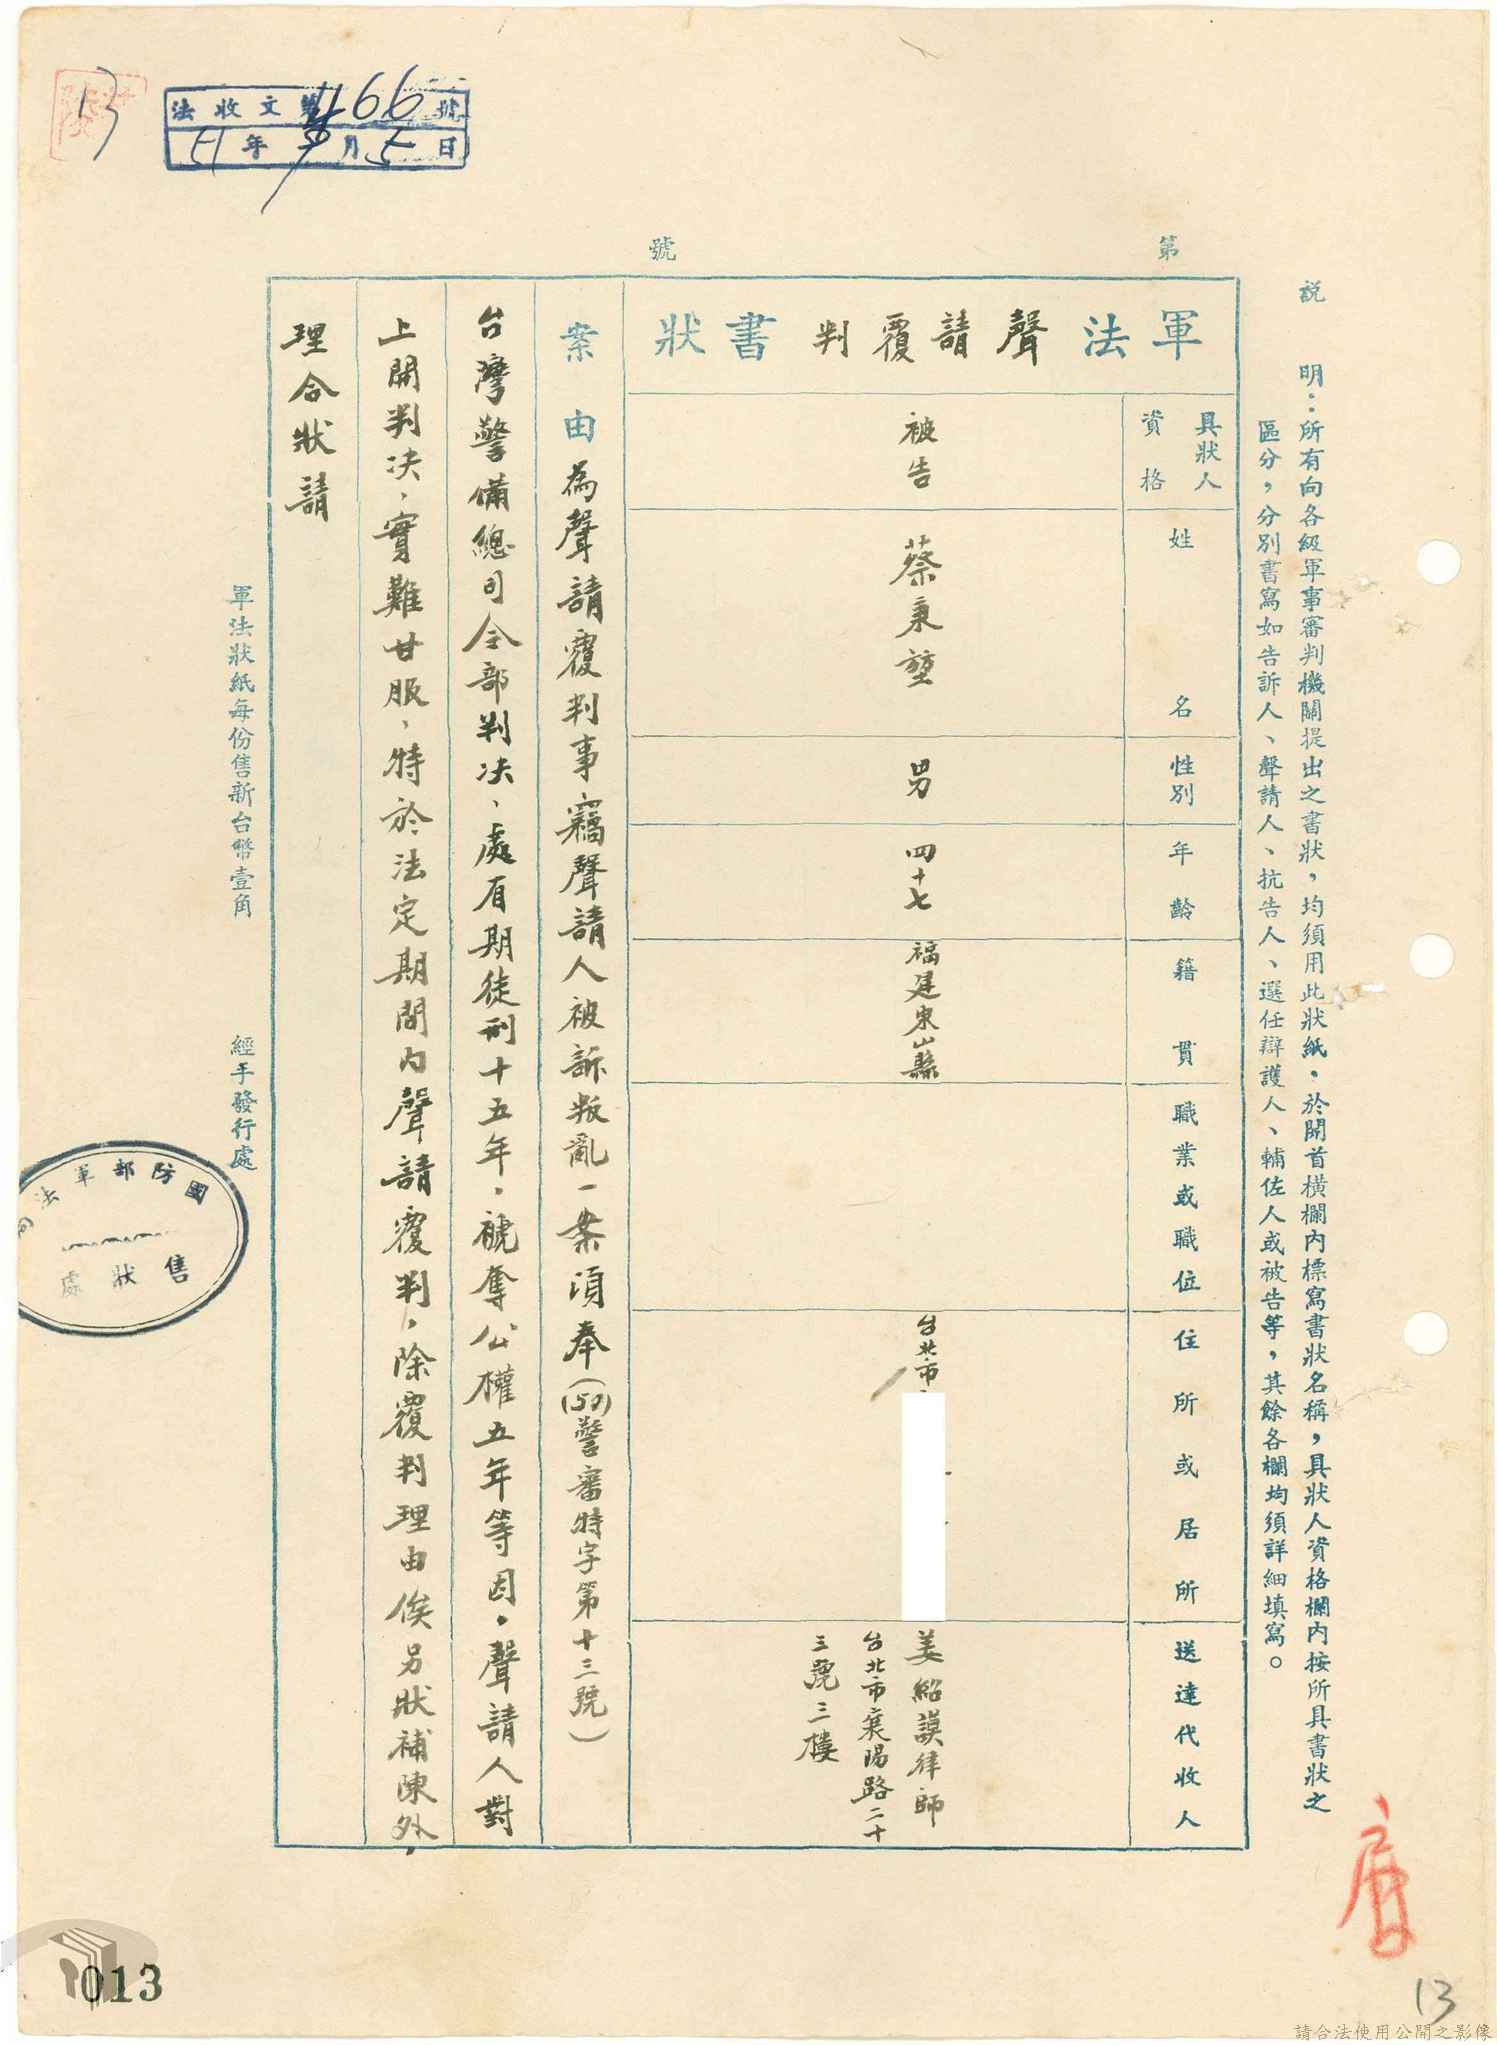 13
法收文第1166號
51年9月5日
第 號
說 明：所有向各級軍事審判機關提出之書狀，均須用此狀紙。於開首橫欄內標寫書狀名稱，具狀人資格欄內按所具書狀之
區分，分別書寫如告訴人、聲請人、抗告人、選任辯護人、輔佐人或被告等，其餘各欄均須詳細填寫。
軍法聲請覆判書狀
具狀人資格
姓名
性別
年齡
籍貫
職業或職位
住所或居所
送達代收人
被告
蔡秉堃
男
四十七
福建東山縣
台北市
姜紹謨律師
台北市襄陽路二十
三號三樓
案由為聲請覆判事竊聲請人被訴叛亂一案頃奉(（50）警審特字第十三號)
台灣警備總司令部判決、處有期徒刑十五年，褫奪公權五年等因。聲請人對
上開判決，實難甘服，特於法定期間內聲請覆判，除覆判理由俟另狀補陳外，
理合狀請
軍法狀紙每份售新台幣壹角
經手發行處
國防部軍法局
售狀處
013
13
請合法使用公開之影像